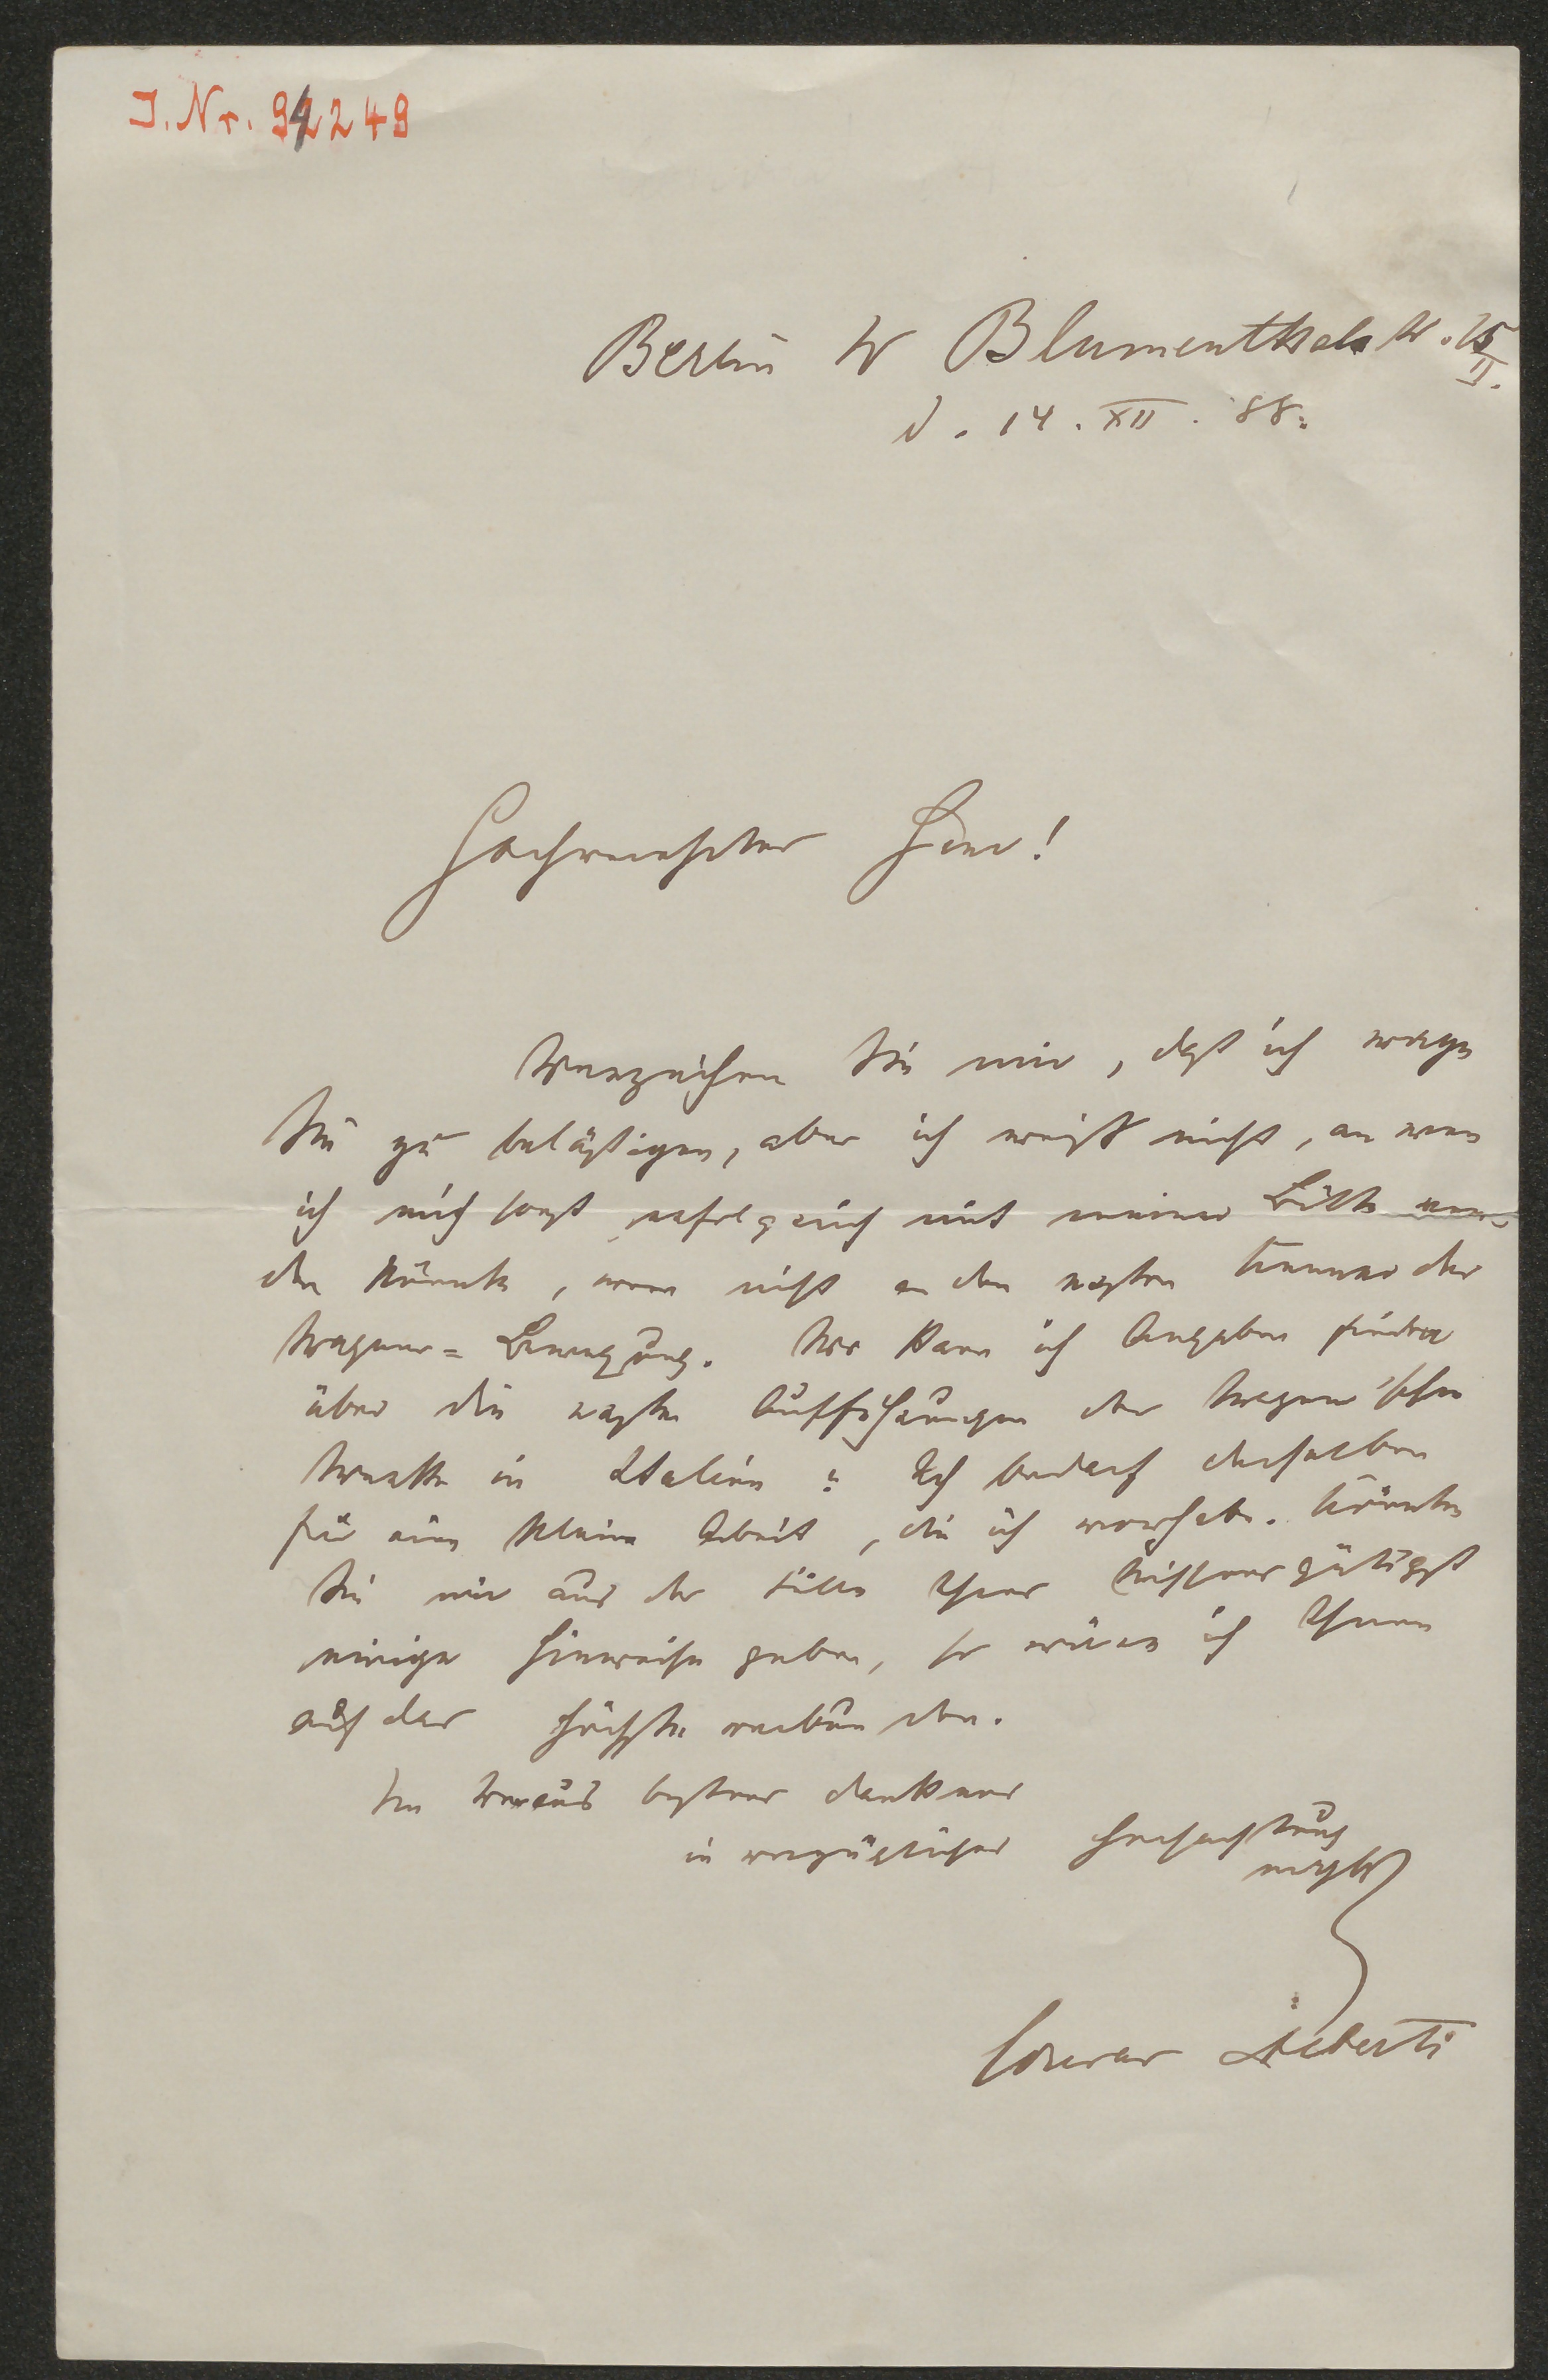 J. Nr. 94249
Berlin W Blumenthalstr. 15 II.
d. 14. XII. 88.
Hochverehrter Herr!
Verzeihen Sie mir, daß ich wage
Sie zu belästigen, aber ich weiß nicht, an wen
ich mich sonst erfolgreich mit meiner Bitte wen-
den könnte, wenn nicht an den ersten Kenner der
Wagner=Bewegung. Wo kann ich Angaben finden
über die ersten Aufführungen der Wagner'schen
Werke in Italien? Ich bedarf derselben
für eine kleine Arbeit, die ich vorhabe. Könnten
Sie mir aus der Fülle Ihres Wissens gütigst
einige Hinweise geben, so wäre ich Ihnen
auf das höchste verbunden.
Im Voraus bestens dankend
in vorzüglicher Hochachtung
ergebenst
Conrad Alberti